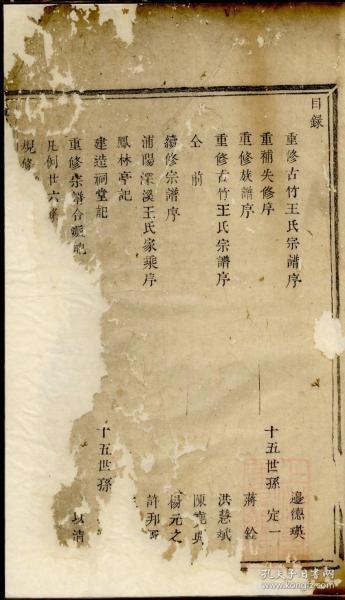 目録
重修古竹王氏宗譜序 邊德瑛
重補失修序 十五世孫 定一
重修族譜序 蔣銓
重修古竹王氏宗譜序 洪慧斌
仝前
續修宗譜序 楊元之
浦陽深溪王氏家乘序 許邦
鳳林亭記
建造祠堂記 十五世孫
重修宗譜合 記 以清
凡例廿六
規條
孔夫子旧书网